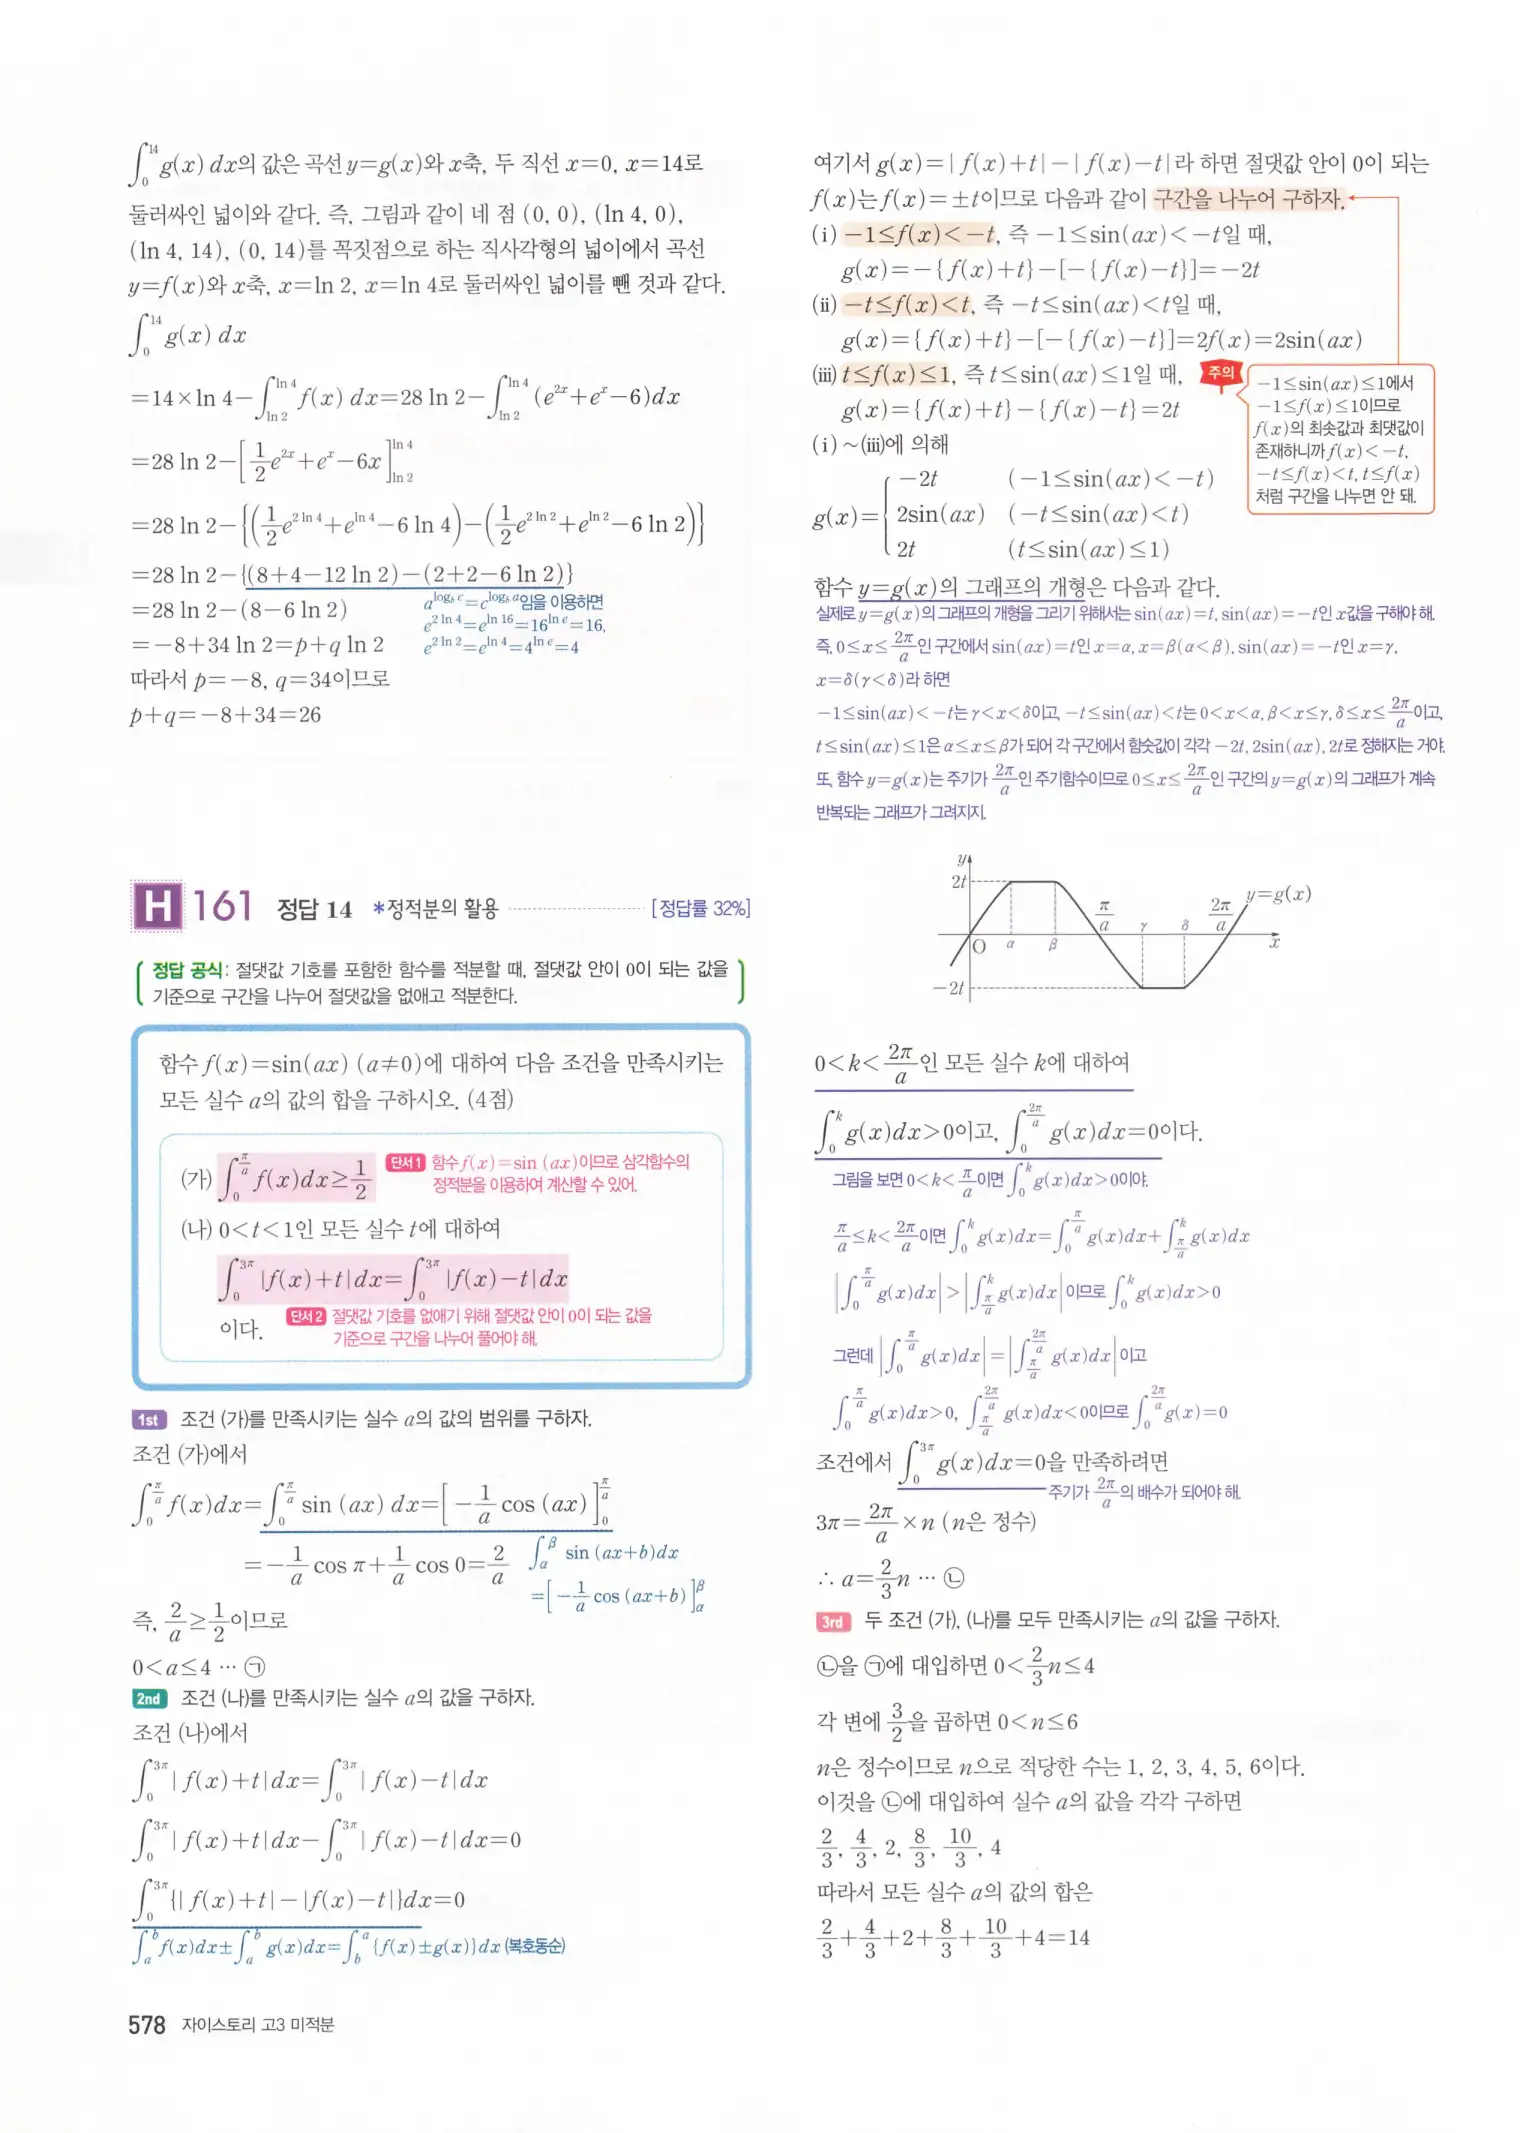 ∫₀¹⁴ g(x) dx의 값은 곡선 y=g(x)와 x축, 두 직선 x=0, x=14로
둘러싸인 넓이와 같다. 즉, 그림과 같이 네 점 (0, 0), (ln 4, 0),
(ln 4, 14), (0, 14)를 꼭짓점으로 하는 직사각형의 넓이에서 곡선
y=f(x)와 x축, x=ln 2, x=ln 4로 둘러싸인 넓이를 뺀 것과 같다.
∫₀¹⁴ g(x) dx
=14×ln 4−∫_{ln 2}^{ln 4} f(x) dx=28 ln 2−∫_{ln 2}^{ln 4} (e^{2x}+e^x−6)dx
=28 ln 2−[1/2 e^{2x}+e^x−6x]_{ln 2}^{ln 4}
=28 ln 2−{(1/2 e^{2 ln 4}+e^{ln 4}−6 ln 4)−(1/2 e^{2 ln 2}+e^{ln 2}−6 ln 2)}
=28 ln 2−{(8+4−12 ln 2)−(2+2−6 ln 2)}
=28 ln 2−(8−6 ln 2)
a^{log_b c}=c^{log_b a}임을 이용하면
e^{2 ln 4}=e^{ln 16}=16^{ln e}=16,
=−8+34 ln 2=p+q ln 2
e^{2 ln 2}=e^{ln 4}=4^{ln e}=4
따라서 p=−8, q=34이므로
p+q=−8+34=26
H 161 정답 14 *정적분의 활용 [정답률 32%]
정답 공식: 절댓값 기호를 포함한 함수를 적분할 때, 절댓값 안이 0이 되는 값을
기준으로 구간을 나누어 절댓값을 없애고 적분한다.
함수 f(x)=sin(ax) (a≠0)에 대하여 다음 조건을 만족시키는
모든 실수 a의 값의 합을 구하시오. (4점)
(가) ∫₀^{π/a} f(x)dx≥1/2 단서1 함수 f(x)=sin (ax)이므로 삼각함수의
정적분을 이용하여 계산할 수 있어.
(나) 0<t<1인 모든 실수 t에 대하여
∫₀^{3π} |f(x)+t|dx=∫₀^{3π} |f(x)−t|dx
이다.
단서2 절댓값 기호를 없애기 위해 절댓값 안이 0이 되는 값을
기준으로 구간을 나누어 풀어야 해.
1st 조건 (가)를 만족시키는 실수 a의 값의 범위를 구하자.
조건 (가)에서
∫₀^{π/a} f(x)dx=∫₀^{π/a} sin (ax) dx=[−1/a cos (ax)]₀^{π/a}
=−1/a cos π+1/a cos 0=2/a
∫_α^β sin (ax+b)dx
=[−1/a cos (ax+b)]_α^β
즉, 2/a≥1/2이므로
0<a≤4 ⋯ ㉠
2nd 조건 (나)를 만족시키는 실수 a의 값을 구하자.
조건 (나)에서
∫₀^{3π} |f(x)+t|dx=∫₀^{3π} |f(x)−t|dx
∫₀^{3π} |f(x)+t|dx−∫₀^{3π} |f(x)−t|dx=0
∫₀^{3π} {|f(x)+t|−|f(x)−t|}dx=0
∫_a^b f(x)dx±∫_a^b g(x)dx=∫_b^a {f(x)±g(x)}dx (복호동순)
578 자이스토리 고3 미적분
여기서 g(x)=|f(x)+t|−|f(x)−t|라 하면 절댓값 안이 0이 되는
f(x)는 f(x)=±t이므로 다음과 같이 구간을 나누어 구하자.
(ⅰ) −1≤f(x)<−t, 즉 −1≤sin(ax)<−t일 때,
g(x)=−{f(x)+t}−[−{f(x)−t}]=−2t
(ⅱ) −t≤f(x)<t, 즉 −t≤sin(ax)<t일 때,
g(x)={f(x)+t}−[−{f(x)−t}]=2f(x)=2sin(ax)
(ⅲ) t≤f(x)≤1, 즉 t≤sin(ax)≤1일 때,
g(x)={f(x)+t}−{f(x)−t}=2t
주의
−1≤sin(ax)≤1에서
−1≤f(x)≤1이므로
f(x)의 최솟값과 최댓값이
존재하니까 f(x)<−t,
−t≤f(x)<t, t≤f(x)
처럼 구간을 나누면 안 돼.
(ⅰ)~(ⅲ)에 의해
g(x)={ −2t (−1≤sin(ax)<−t)
2sin(ax) (−t≤sin(ax)<t)
2t (t≤sin(ax)≤1)
함수 y=g(x)의 그래프의 개형은 다음과 같다.
실제로 y=g(x)의 그래프의 개형을 그리기 위해서는 sin(ax)=t, sin(ax)=−t인 x값을 구해야 해.
즉, 0≤x≤2π/a인 구간에서 sin(ax)=t인 x=α, x=β(α<β), sin(ax)=−t인 x=γ,
x=δ(γ<δ)라 하면
−1≤sin(ax)<−t는 γ<x<δ이고, −t≤sin(ax)<t는 0<x<α, β<x≤γ, δ≤x≤2π/a이고,
t≤sin(ax)≤1은 α≤x≤β가 되어 각 구간에서 함숫값이 각각 −2t, 2sin(ax), 2t로 정해지는 거야.
또, 함수 y=g(x)는 주기가 2π/a인 주기함수이므로 0≤x≤2π/a인 구간의 y=g(x)의 그래프가 계속
반복되는 그래프가 그려지지.
y
2t
y=g(x)
O α β π/a γ δ 2π/a x
−2t
0<k<2π/a인 모든 실수 k에 대하여
∫₀^k g(x)dx>0이고, ∫₀^{2π/a} g(x)dx=0이다.
그림을 보면 0<k<π/a이면 ∫₀^k g(x)dx>0이야.
π/a≤k<2π/a이면 ∫₀^k g(x)dx=∫₀^{π/a} g(x)dx+∫_{π/a}^k g(x)dx
|∫₀^{π/a} g(x)dx|>|∫_{π/a}^k g(x)dx|이므로 ∫₀^k g(x)dx>0
그런데 |∫₀^{π/a} g(x)dx|=|∫_{π/a}^{2π/a} g(x)dx|이고
∫₀^{π/a} g(x)dx>0, ∫_{π/a}^{2π/a} g(x)dx<0이므로 ∫₀^{2π/a} g(x)=0
조건에서 ∫₀^{3π} g(x)dx=0을 만족하려면
주기가 2π/a의 배수가 되어야 해.
3π=2π/a×n (n은 정수)
∴ a=2/3 n ⋯ ㉡
3rd 두 조건 (가), (나)를 모두 만족시키는 a의 값을 구하자.
㉡을 ㉠에 대입하면 0<2/3 n≤4
각 변에 3/2을 곱하면 0<n≤6
n은 정수이므로 n으로 적당한 수는 1, 2, 3, 4, 5, 6이다.
이것을 ㉡에 대입하여 실수 a의 값을 각각 구하면
2/3, 4/3, 2, 8/3, 10/3, 4
따라서 모든 실수 a의 값의 합은
2/3+4/3+2+8/3+10/3+4=14